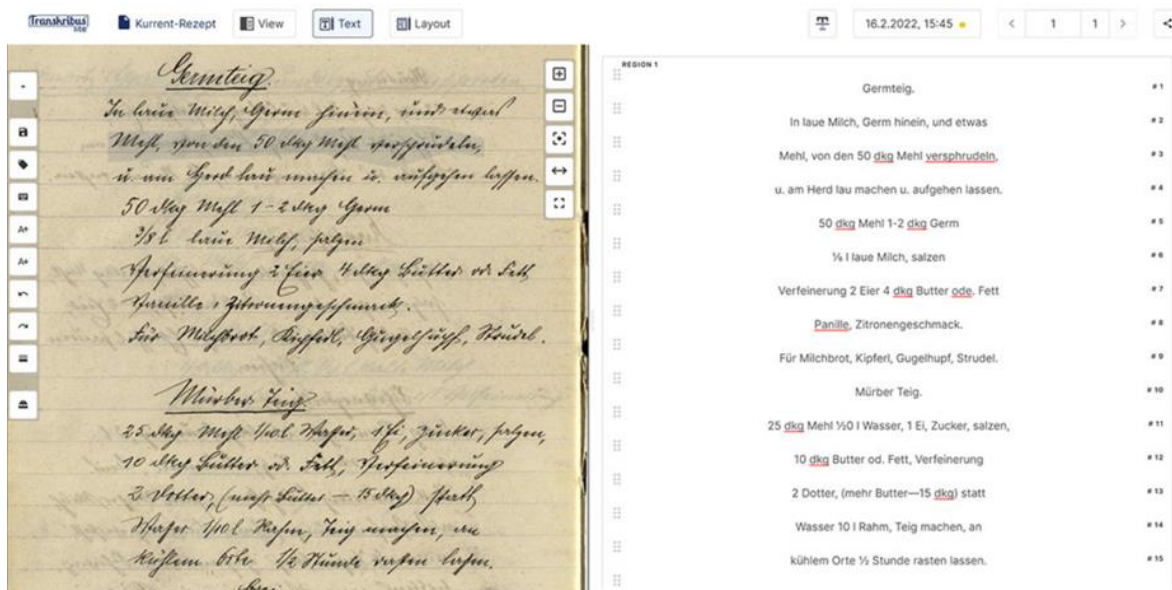 Transkribus lite Kurrent-Rezept View Text Layout 16.2.2022, 15:45 < 1 1 >
Germteig.
In laue Milch, Germ hinein, und etwas
Mehl, von den 50 dkg Mehl versprudeln,
u. am Herd lau machen u. aufgehen lassen.
50 dkg Mehl 1-2 dkg Germ
3/8 l laue Milch, salzen
Verfeinerung 2 Eier 4 dkg Butter od. Fett
Vanille, Zitronengeschmack.
Für Milchbrot, Kipferl, Gugelhupf, Strudel.
Mürber Teig.
25 dkg Mehl 1/10 l Wasser, 1 Ei, Zucker, salzen,
10 dkg Butter od. Fett, Verfeinerung
2 Dotter, (mehr Butter — 15 dkg) statt
Wasser 1/10 l Rahm, Teig machen, an
kühlem Orte 1/2 Stunde rasten lassen.
REGION 1
Germteig. #1
In laue Milch, Germ hinein, und etwas #2
Mehl, von den 50 dkg Mehl versphrudeln, #3
u. am Herd lau machen u. aufgehen lassen. #4
50 dkg Mehl 1-2 dkg Germ #5
⅛ l laue Milch, salzen #6
Verfeinerung 2 Eier 4 dkg Butter ode. Fett #7
Panille, Zitronengeschmack. #8
Für Milchbrot, Kipferl, Gugelhupf, Strudel. #9
Mürber Teig. #10
25 dkg Mehl ½0 l Wasser, 1 Ei, Zucker, salzen, #11
10 dkg Butter od. Fett, Verfeinerung #12
2 Dotter, (mehr Butter—15 dkg) statt #13
Wasser 10 l Rahm, Teig machen, an #14
kühlem Orte ½ Stunde rasten lassen. #15